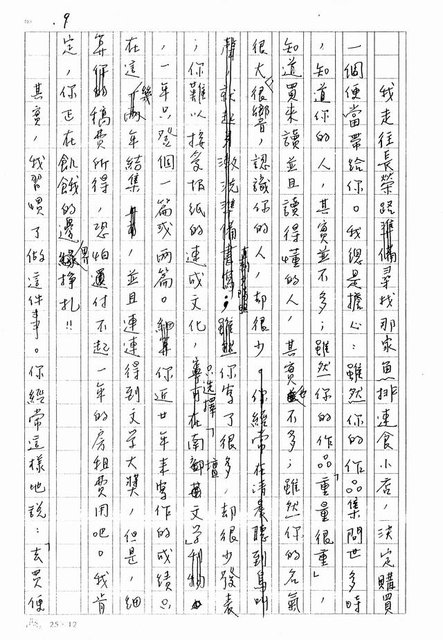 9
我走往長榮路準備尋找那家魚排速食小店，決定購買
一個便當帶給你。我總是擔心：雖然你的作品集問世多時
，知道你的人，其實並不多；雖然你的作品「重量很重」，
知道買來讀並且讀得懂的人，其實也不多；雖然你的名氣
很大、很響，認識你的人，卻很少。你經常在清晨聽到鳥叫
聲，就起身漱洗準備書寫；雖然你寫了很多，卻很少發表
；你難以接受報紙的速成文化，只選擇在南部「文學」
，一年只登個一篇或兩篇。細算你近廿年來寫作的成績。
在這幾年結集，並且連連得到文學大獎，但是，細
算你的稿費所得，恐怕還付不起一年的房租費用吧。我肯
定，你正在飢餓的邊界掙扎！！
其實，我習慣了做這件事。你經常這樣地說：「去買便
25 12